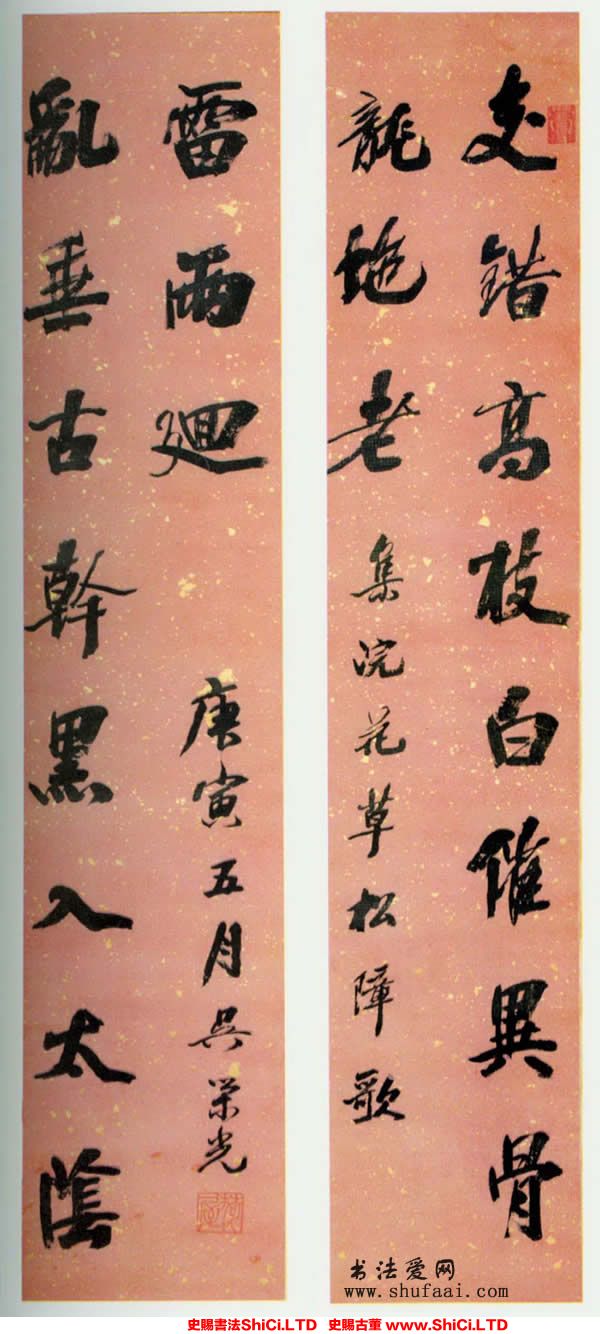 交錯高枝白催異骨
龍蛇老
集浣花草松障歌
亂垂古幹黑入太蔭
雷雨廻
庚寅五月吳榮光
书法爱网
www.shufaai.com
史賜書法ShiCi.LTD 史賜古董 www.ShiCi.LTD